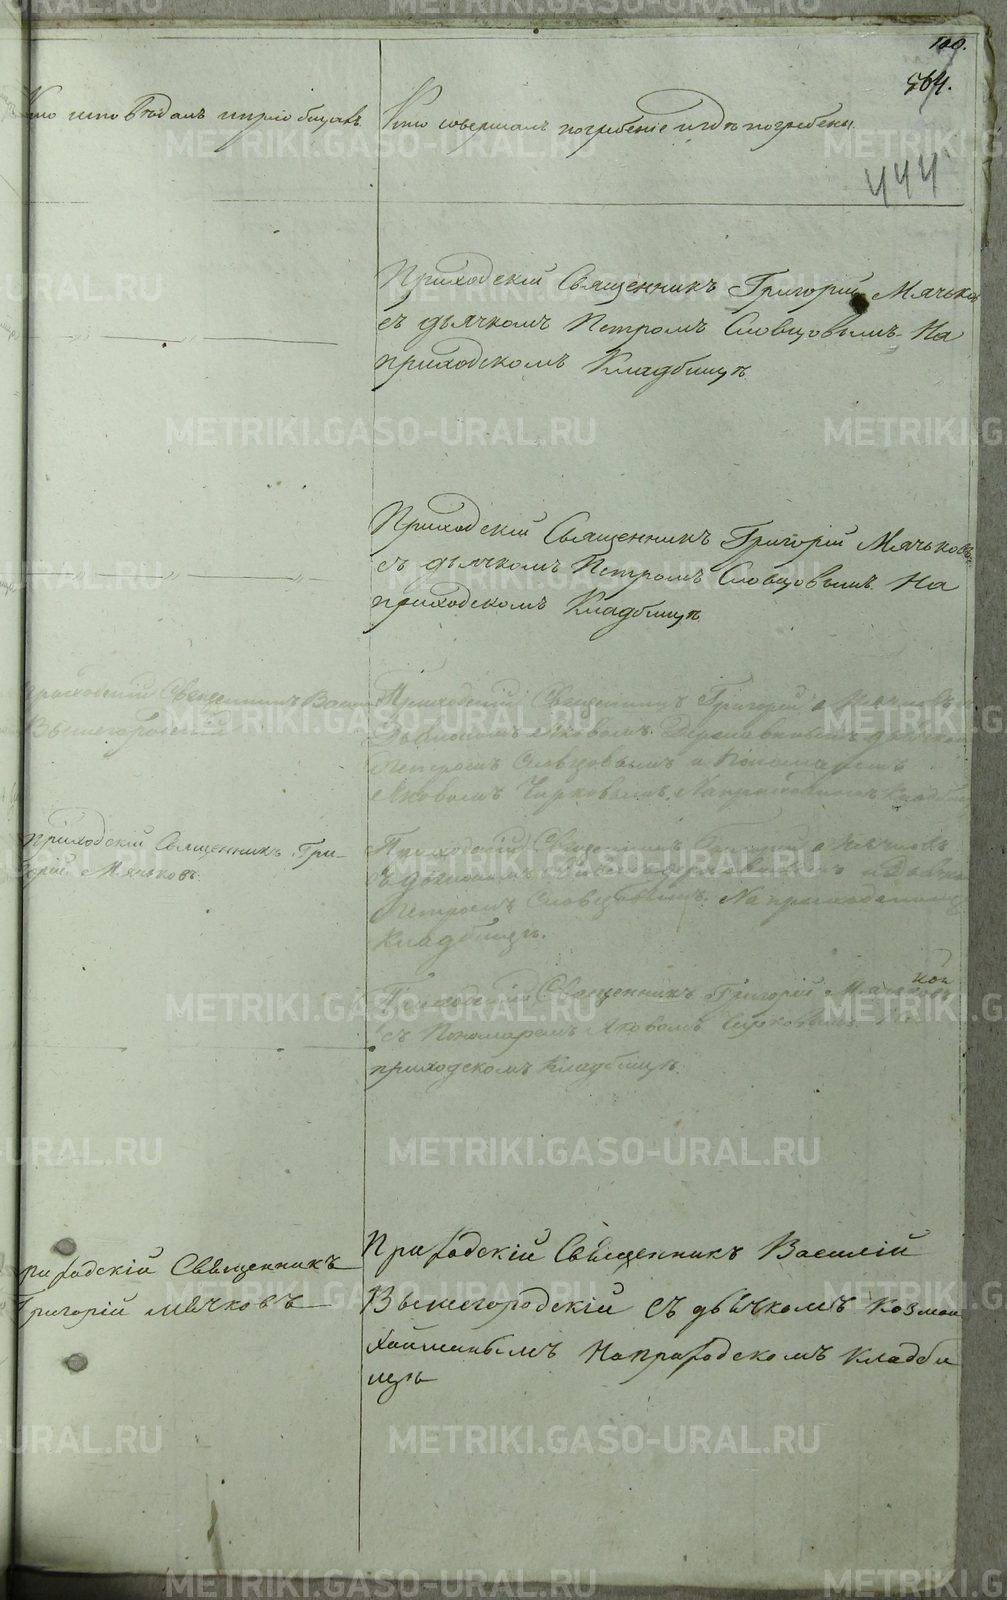 100.
564.
444
Кто исповѣдалъ и пріобщалъ.
Кто совершалъ погребеніе и гдѣ погребены.
Приходскій Священникъ Григорій Мячько
съ дьячкомъ Петромъ Словцовымъ. На
приходскомъ Кладбищѣ
Приходскій Священникъ Григорій Мячьковъ
съ дьячкомъ Петромъ Словцовымъ. На
приходскомъ Кладбищѣ.
приходскій Священникъ
Вышегородскій
Приходскій Священникъ Григорій Мячковъ
Діакономъ Яковомъ дьячкомъ
Петромъ Словцовымъ и Пономаремъ
Яковомъ Чирковымъ. На приходскомъ Кладби
Приходскій Священникъ Гри-
горій Мячьковъ.
Приходскій Священникъ Григорій Мячковъ
Петромъ Словцовымъ. На приходскомъ
Кладбищѣ.
Приходскій Священникъ Григорій
съ Пономаремъ Яковомъ Чирковымъ На
приходскомъ Кладбищѣ.
риходскій Священникъ
Григорій Мячковъ
Приходскій Священникъ Василій
Вышегородскій Съ дьячкомъ Козмой
На приходскомъ Кладби
щѣ
METRIKI.GASO-URAL.RU